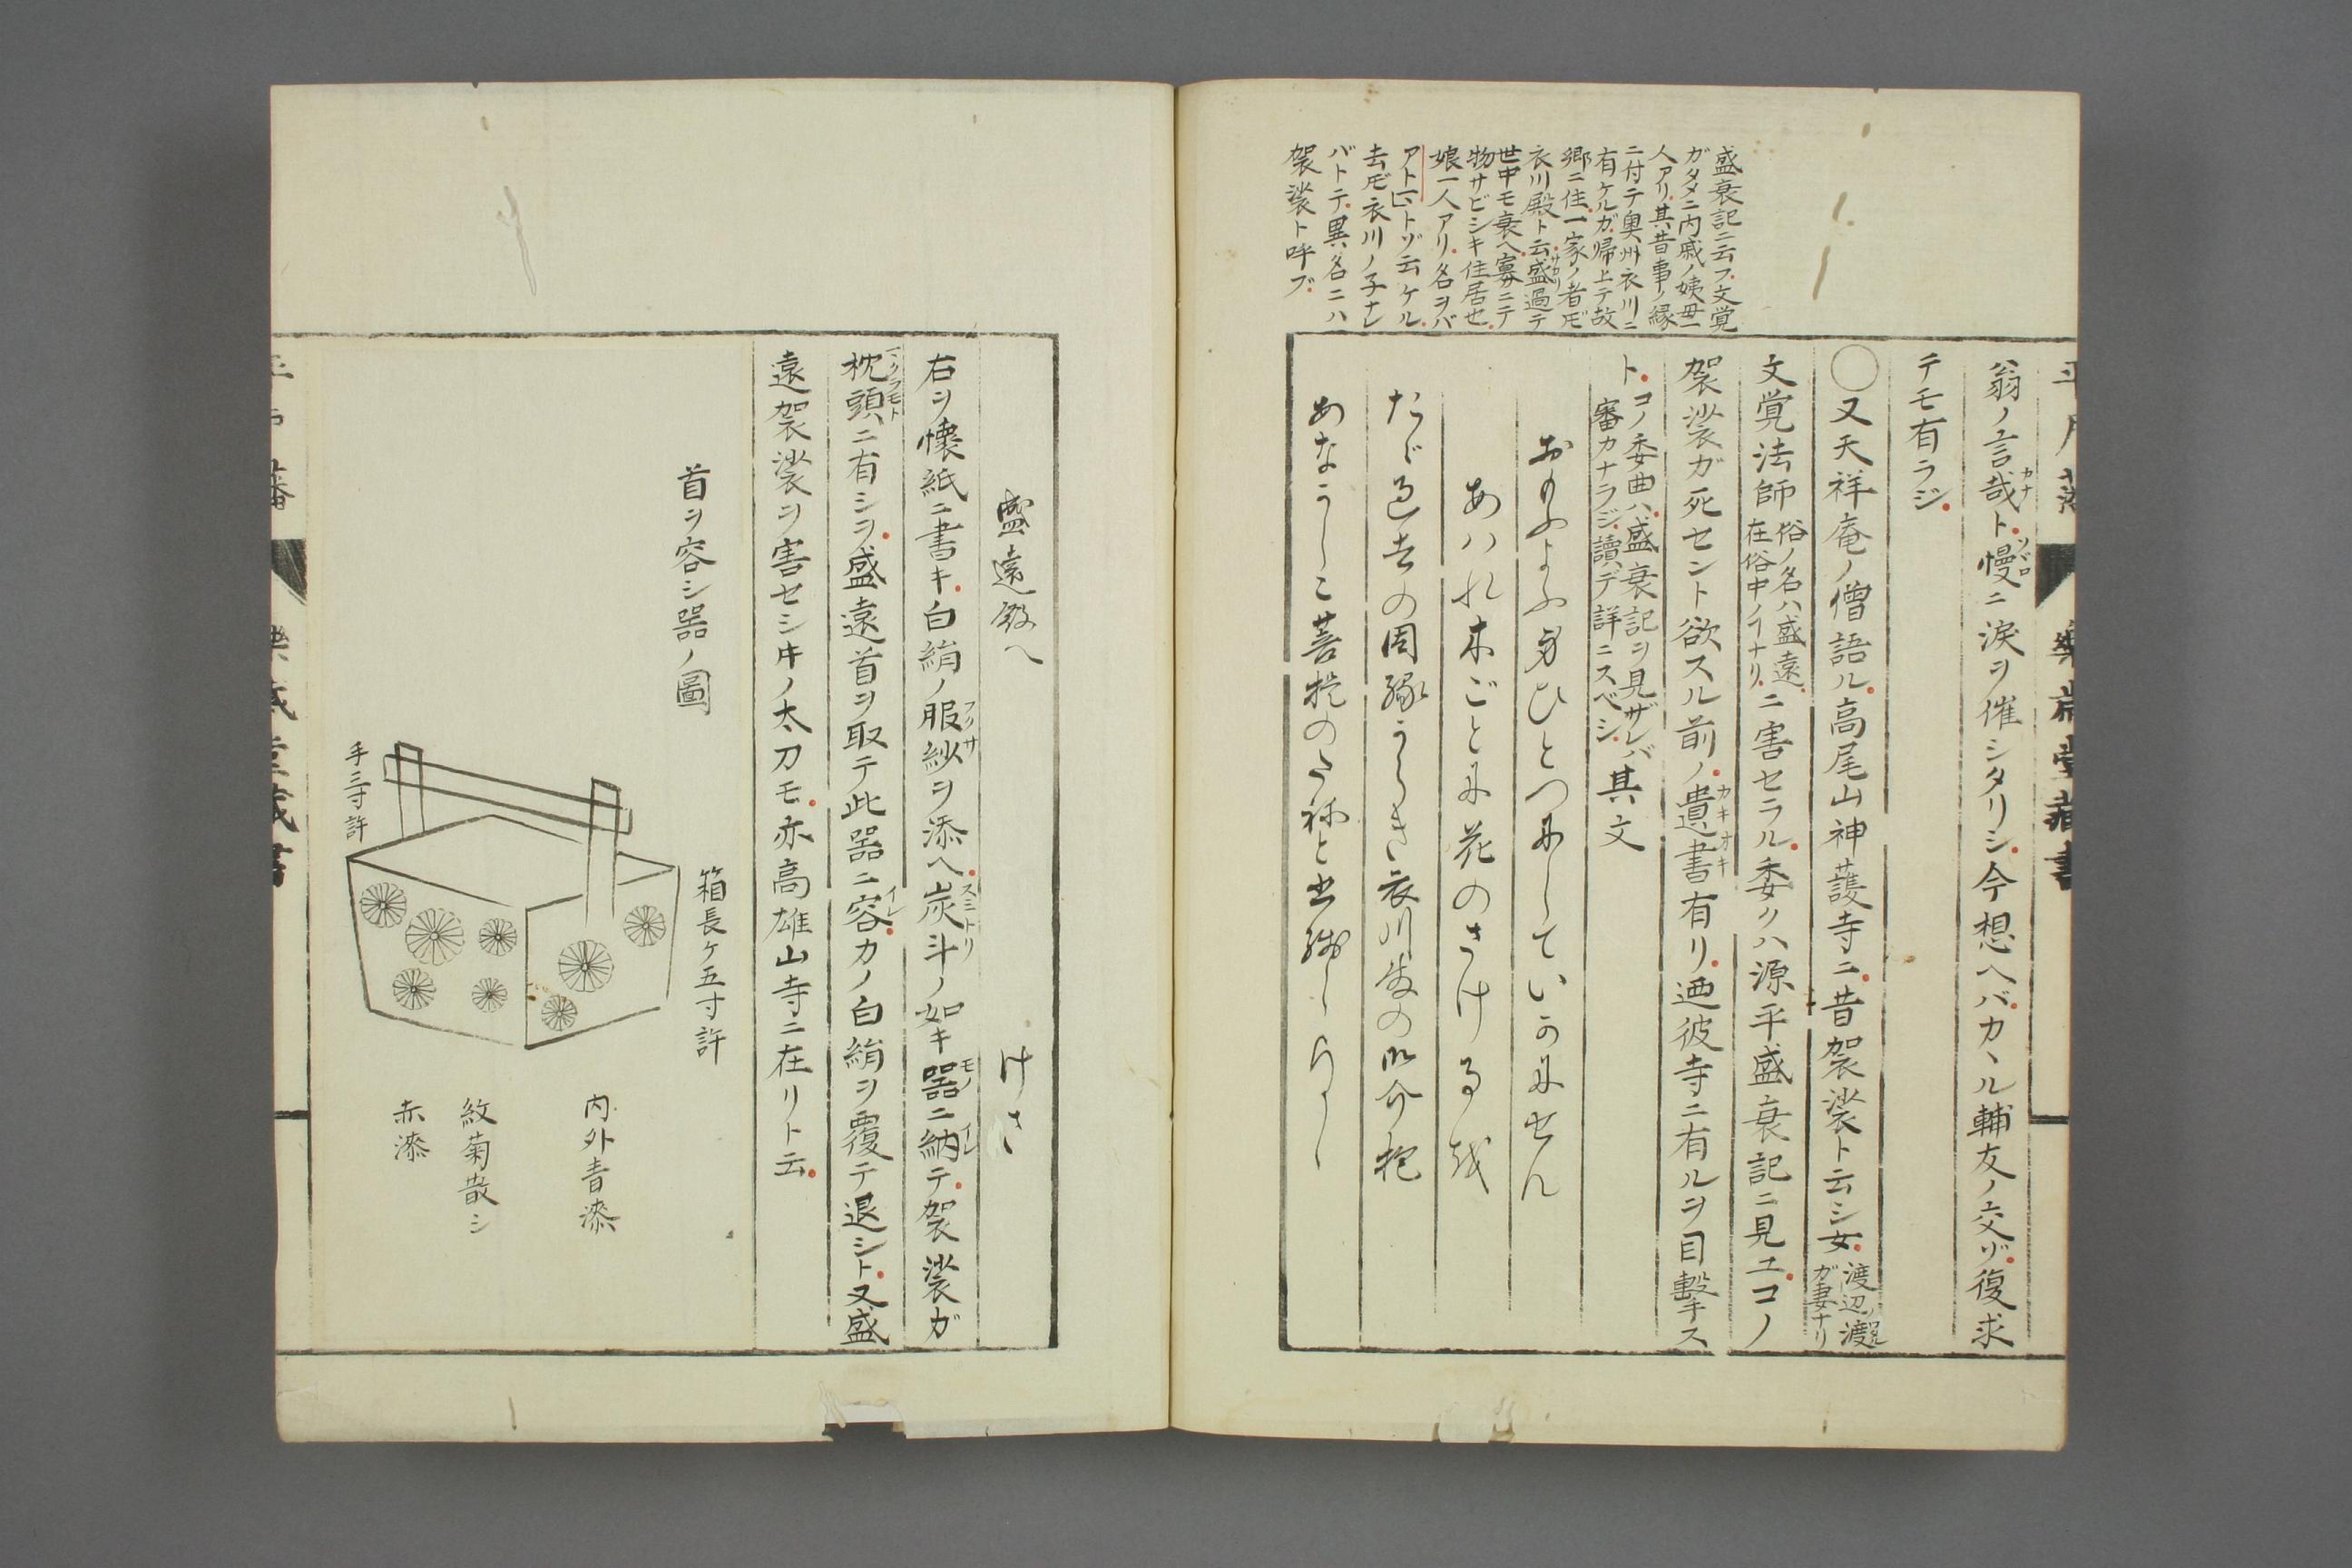 盛衰記ニ云フ文覚
ガタメニ内戚ノ姨母一
人アリ其昔事ノ縁
ニ付テ奥州衣川ニ
有ケルガ帰上テ故
郷ニ住一家ノ者𪜈
衣川殿ト云盛過テ
世中モ衰ヘ寡ニテ
物サビシキ住居也
娘一人アリ名ヲバ
アトマトゾ云ケル
去𪜈衣川ノ子ナレ
バトテ異名ニハ
袈裟ト呼ブ
翁ノ言哉ト慢ニ涙ヲ催シタリシ今想ヘバカヽル輔友ノ交ゾ復求
テモ有ラジ
○又天祥庵ノ僧語ル高尾山神護寺ニ昔袈裟ト云シ女渡辺ノ渡ガ妻ナリ
文覚法師俗ノ名ハ盛遠在俗中ノコナリニ害セラル委クハ源平盛衰記ニ見ユコノ
袈裟ガ死セント欲スル前ノ遺書有リ迺彼寺ニ有ルヲ目撃ス
トコノ委曲ハ盛衰記ヲ見ザレバ審カナラジ讀デ詳ニスベシ其文
おもふよふ身ひとつにしていかにせん
あハれ木ごとに花のさける哉
たゞ過去の因縁うらき衣川殿の
あなうし菩提の
盛遠殿へ
けさ
右ヲ懐紙ニ書キ白絹ノ服紗ヲ添ヘ炭斗ノ如キ器ニ納テ袈裟ガ
枕頭ニ有シヲ盛遠首ヲ取テ此器ニ容カノ白絹ヲ覆テ退シト又盛
遠袈裟ヲ害セシ𪜈ノ太刀モ亦高雄山寺ニ在リト云
首ヲ容シ器ノ圖
箱長ケ五寸許
手三寸許
内外青漆
紋菊散シ
赤漆
樂歳堂蔵書